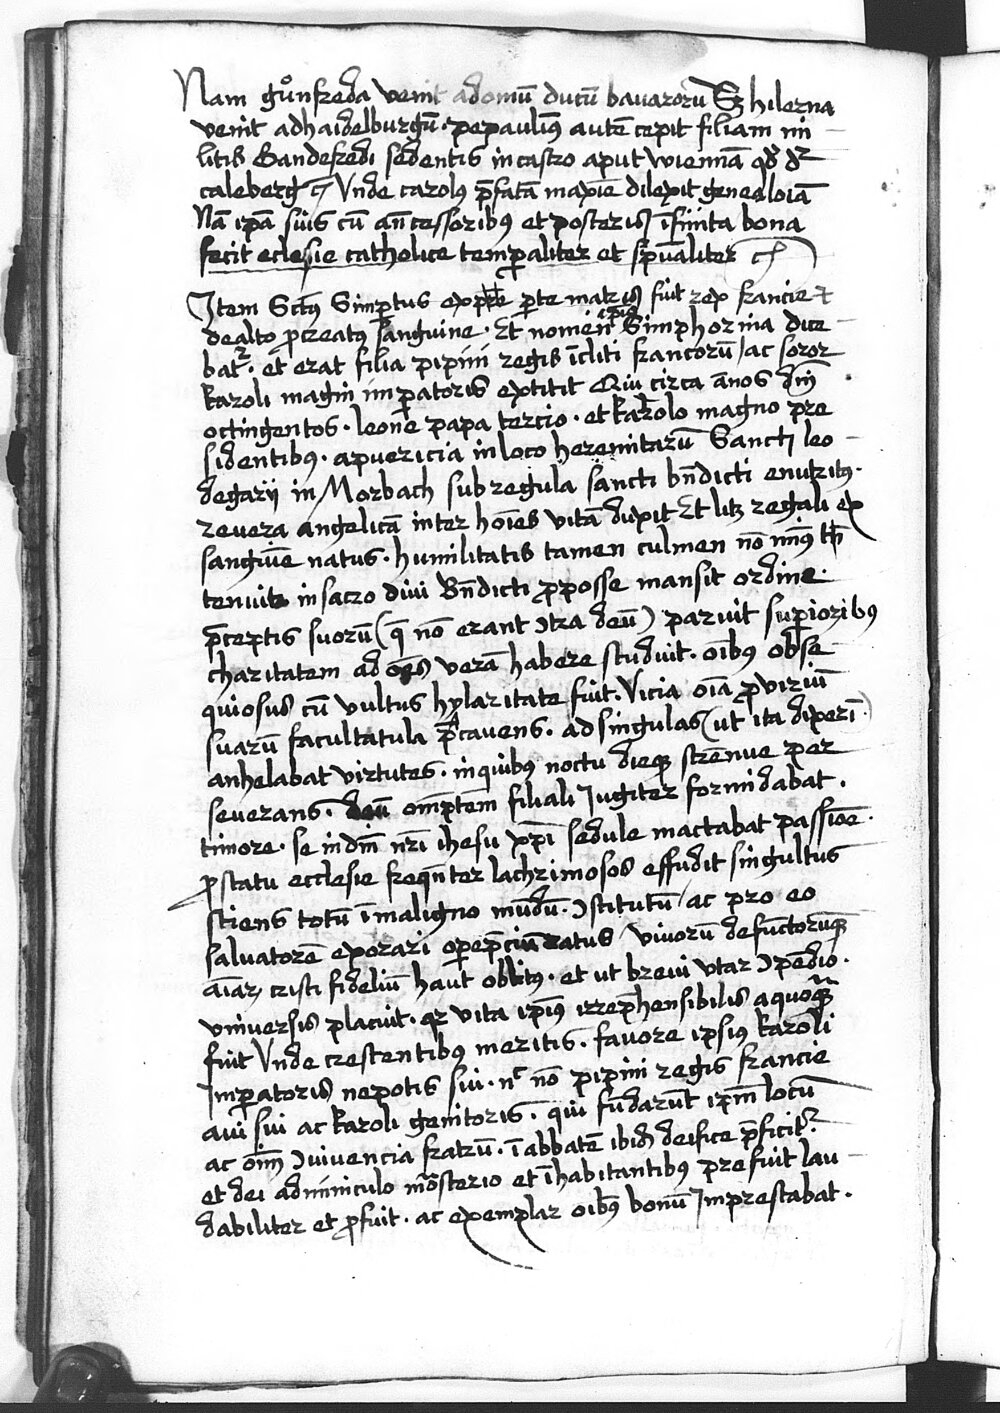 Nam gůnfreda venit adomū ducū bavarorū Sʒ hilerna
venit adhaidelburgū · pepauliꝰ autē cepit filiam mi
litis Gandefredi sedentis in castro aput wiennā qd dr
caleberg Vnde carolꝰ p̄fatā maxīe dilexit genealoiā
Nā ipā suis cū an̄cessoribꝰ et posteris īfinita bona
fecit eclesie catholice temꝑaliter et spūaliter
Item Sctūs Simpertus ex ꝑte matris fuit rex francie
dealto ꝓcreatꝰ sanguine · Et nomen eiꝰ Simphoria dice
batr · et erat filia pipini regis īcliti francorū / ac soror
karoli magni imꝑatoris extitit Qui circa ānos dn̄i
octingentos · leone papa tercio · et karolo magno pre
sidentibꝰ · apuericia in loco heremitarū Sancti leo
degarij in Morbach sub regula sancti bn̄dicti enutritꝰ ·
revera angelicā inter hoīes vitā duxit Et litʒ regali ex
sanguīe natus · humilitatis tamen culmen nō minꝰ
tenuit in sacro diui Bn̄dicti ꝓposse mansit ordine ·
p̄ceptis suorū (q̄ nō erant ɔtra deū) paruit suꝑioribꝰ
charitatem ad oēs verā habere studuit · oībꝰ obse
quiosus cū vultus hylaritate fuit · Vicia oīa ꝓ viriū
suarū facultatula p̄cavens · ad singulas (ut ita dixerī)
anhelabat virtutes · in quibꝰ noctu dieqꝫ strēnue per
severans · deū omp̄tem filiali Jugiter formidabat ·
timore · se in dn̄i nr̄i ihesu xp̄i sedule mactabat passiōe ·
ꝓ statu ecclesie freqn̄ter lachrimosos effudit singultus
sciens totū ī maligno mūdū · ɔstitutū / ac pro eo
salvatorē exorari oꝑep̄ciū ratus vivorū defūctorūqꝫ
aīarꝫ cristi fideliū haut oblitꝰ · et ut brevi vtar ɔpēdio ·
vniversis placuit · qꝛ vita ipiꝰ irreprehensibilis a quoqꝫ
fuit Vnde crescentibꝰ meritis · favore ipsius karoli
Imꝑatoris nepotis sui · nc̄ nō pipini regis francie
avi sui ac karoli genitoris · qui fūdarūt ipm̄ locū
ac oīm ɔvivencia fratrū · ī abbatē ibid̄ deifice p̄ficitr ·
et dei adminiculo mōsterio et īhabitantibꝰ prefuit lau
dabiliter et ꝓfuit · ac exemplar oībꝰ bonū Imprestabat ·